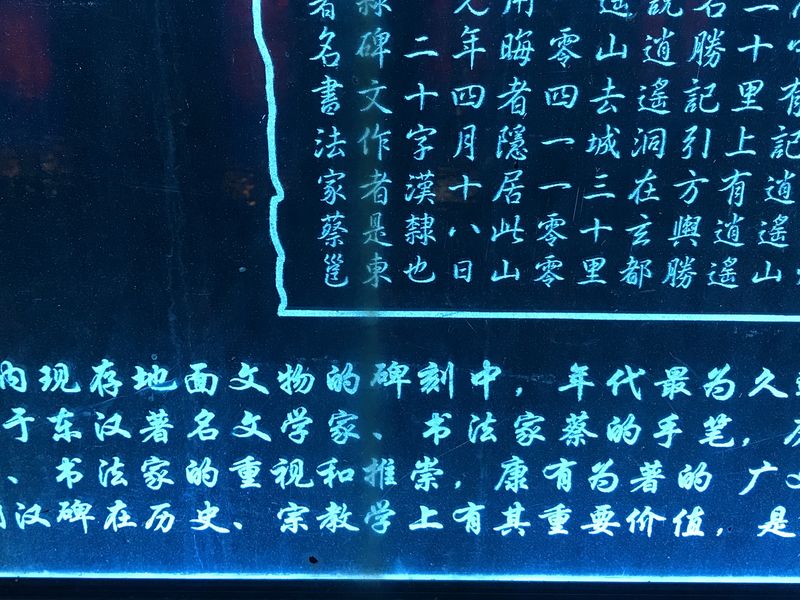 有記逍遙山
二十里上有逍遙
名勝記引方輿勝
說逍遙洞在玄都
遙山去城三十里
零四一一零零
用晦者隱居此山
年四月十八日
二十字漢隸也
隸碑文作者是東
著名書法家蔡邕
内现存地面文物的碑刻中，年代最为久
于东汉著名文学家、书法家蔡的手笔，
、书法家的重视和推崇，康有为著的 广
汉碑在历史、宗教学上有其重要价值，是